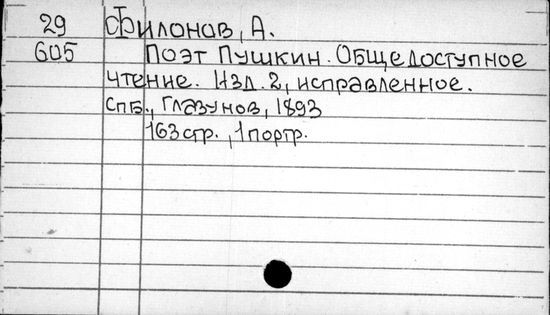 29 Филонов, А.
605 Поэт Пушкин. Общедоступное
чтение. Изд. 2, исправленное.
Спб., Глазунов, 1893
163 стр., 1 портр.